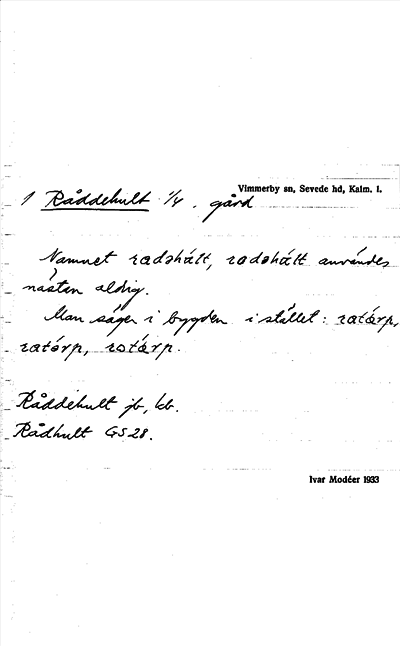 Vimmerby sn, Sevede hd, Kalm. l.
1 Råddehult 1/4. gård
Namnet användes
nästan aldrig.
Man säger i bygden i stället:
Råddehult jb, kb.
Rådhult GS 28.
Ivar Modéer 1933